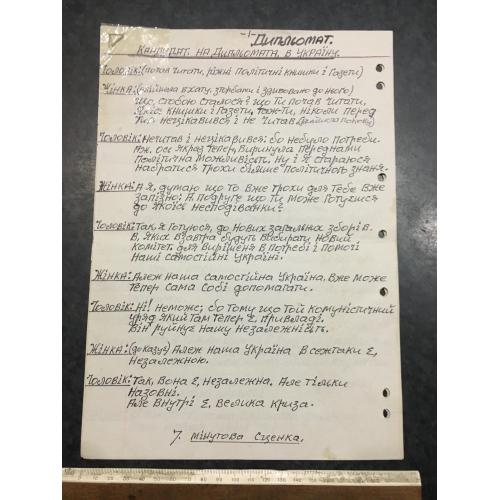 -1-
Дипльомат.
Кандидат. на Дипльомата, в Україну.
Чоловік: (почав читати, ріжні політичні книшки і газети)
Жінка: (ввійшла в хату, і здивовано до нього)
Що, стобою сталося? що ти почав читати,
книшки і газети, ніколи перед
тим нецікавився і не читав
Чоловік: Нечитав і нецікавився: бо небуло потреби.
ось якраз тепер, виринула переднами
політична можливість, ну і я стараюся
набратися трохи більше політичного знаня.
Жінка: А я, думаю що то вже трохи для тебе вже
запізно; А подруге що ти може готуєшся
до якоїсь несподіванки?
Чоловік: Так, я готуюся, до нових загальних зборів в.
в, яких взавтра будуть вибирати новий
комітет. для вирішеня в потребі і помочі
наші самостійні Україні.
Жінка: Алеж наша самостійна Україна, вже може
тепер сама собі допомагати.
Чоловік: Ні! неможе; бо тому що той комуністичний
уряд який там тепер є, привладі.
Він руйнує нашу незалежність.
Жінка: (доказує) Алеж наша Україна всежтаки є,
незалежною.
Чоловік: Так, вона є, незалежна. але тільки
назовні.
але внутрі є, велика криза.
7. мінутова сценка.